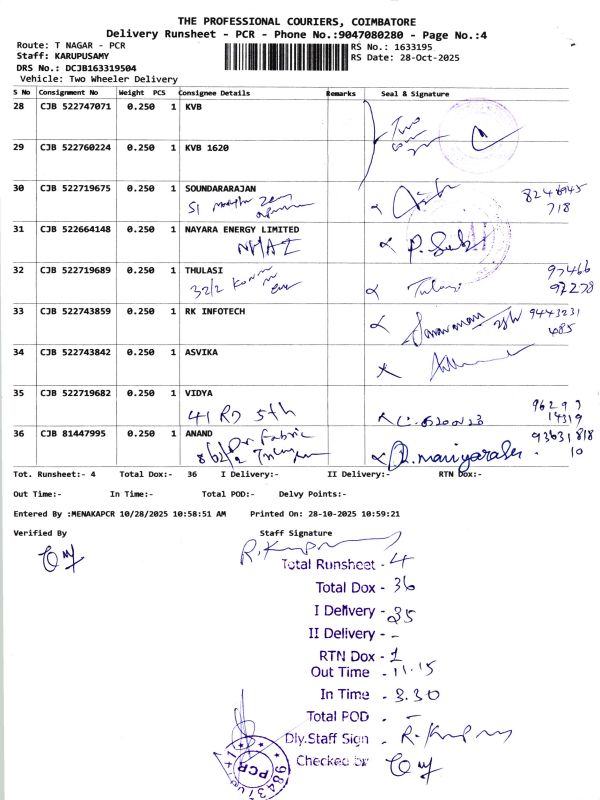 THE PROFESSIONAL COURIERS, COIMBATORE
Delivery Runsheet - PCR - Phone No.:9047080280 - Page No.:4
Route: T NAGAR - PCR RS No.: 1633195
Staff: KARUPUSAMY RS Date: 28-Oct-2025
DRS No.: DCJB163319504
Vehicle: Two Wheeler Delivery
S No Consignment No Weight PCS Consignee Details Remarks Seal & Signature
28 CJB 522747071 0.250 1 KVB
29 CJB 522760224 0.250 1 KVB 1620
30 CJB 522719675 0.250 1 SOUNDARARAJAN
31 CJB 522664148 0.250 1 NAYARA ENERGY LIMITED
32 CJB 522719689 0.250 1 THULASI
32/2
33 CJB 522743859 0.250 1 RK INFOTECH
9443231
485
34 CJB 522743842 0.250 1 ASVIKA
35 CJB 522719682 0.250 1 VIDYA
41 RD 5th
36 CJB 81447995 0.250 1 ANAND
Tot. Runsheet:- 4 Total Dox:- 36 I Delivery:- II Delivery:- RTN Dox:-
Out Time:- In Time:- Total POD:- Delvy Points:-
Entered By :MENAKAPCR 10/28/2025 10:58:51 AM Printed On: 28-10-2025 10:59:21
Verified By Staff Signature
Total Runsheet - 4
Total Dox - 36
I Delivery - 35
II Delivery - -
RTN Dox - 1
Out Time - 11.15
In Time - 3.30
Total POD - -
Dly.Staff Sign -
Checked br
PCR